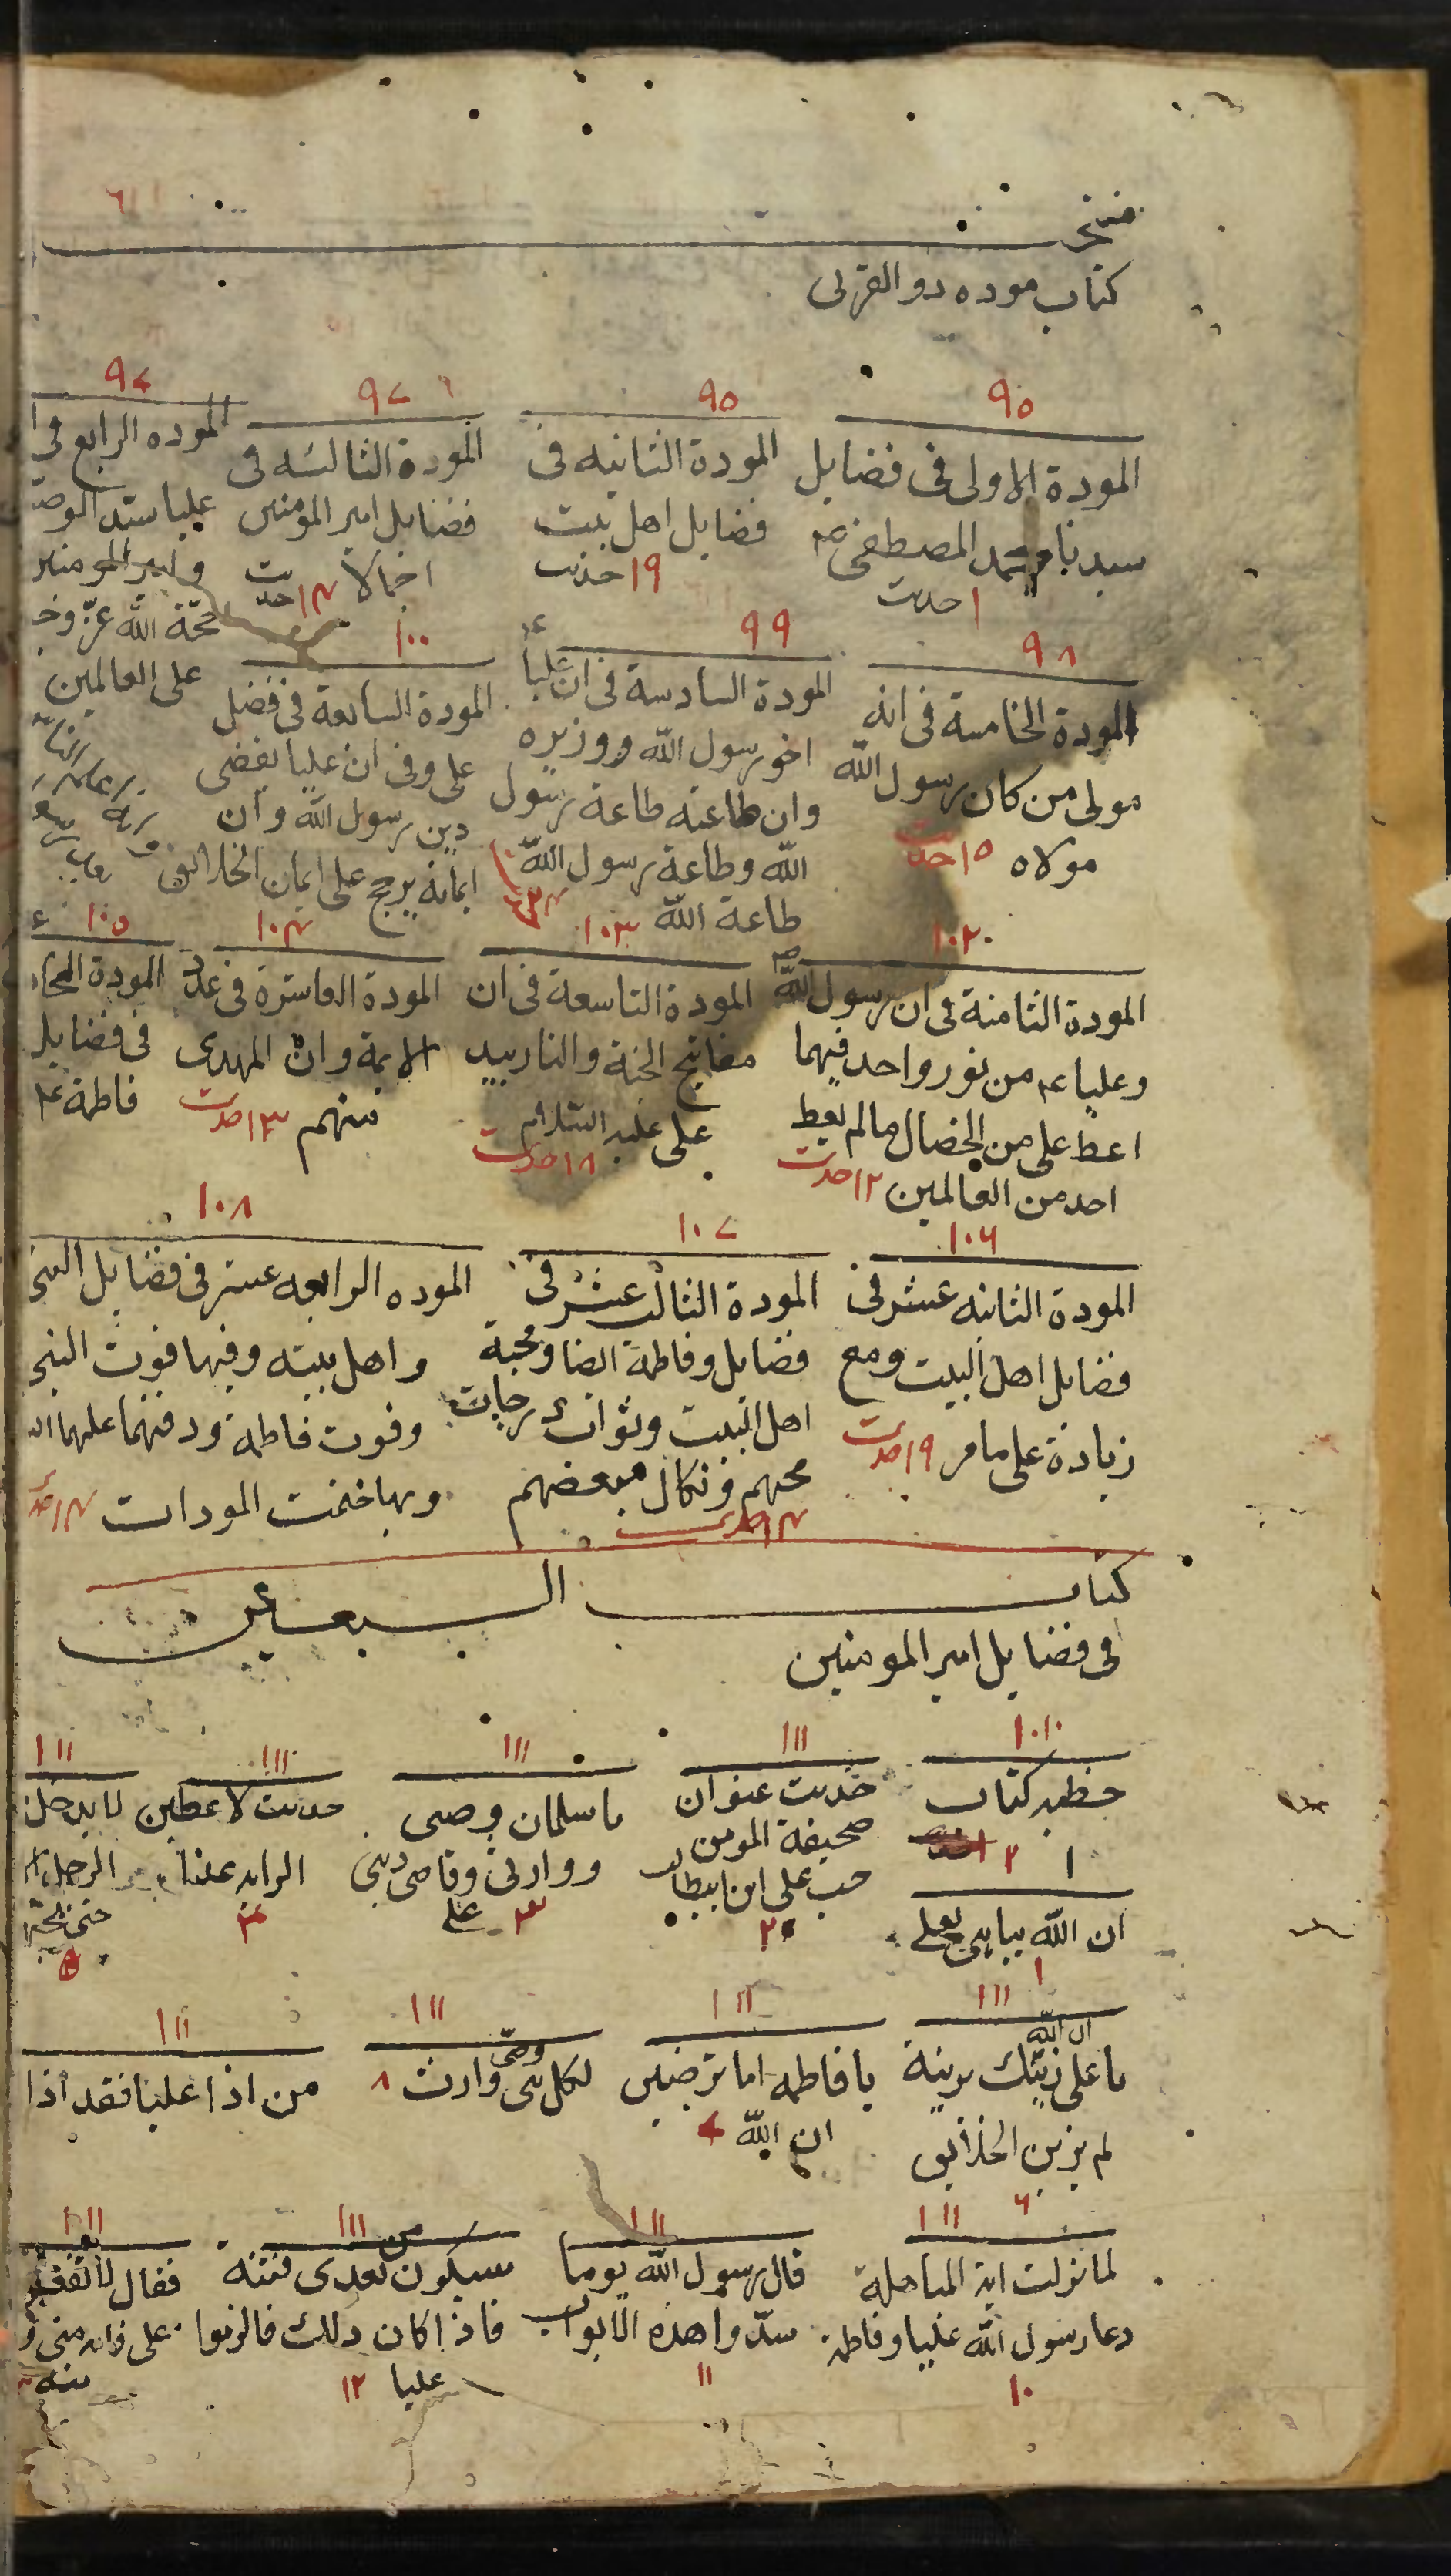 كتاب موده دو القربى
٩٥
المودة الاولى فى فضايل
سيدنا محمد المصطفى ع‍م
١ حديث
٩٥
المودة الثانيه فى
فضايل اهل بيت
١٩ حديث
٩٧
المودة الثالثه فى
فضايل امير المومنين
اجمالا ١٤ حديث
٩٧
الموده الرابع فى
عليا سيد الوصـ
وامير المومنين
حجة الله عزّ وجـ
على العالمين
٩٨
المودة الخامسة فى انه
مولى من كان رسول الله
مولاه ١٥ حديث
٩٩
المودة السادسة فى ان عليا
اخو رسول الله ووزيره
وان طاعته طاعة رسول
الله وطاعة رسول الله
طاعة الله
١٠٠
المودة السابعة فى فضل
على وفى ان عليا يقضى
دين رسول الله وان
ايمانه يرجح على ايمان الخلايق
١٠٢
المودة الثامنة فى ان رسول الله
وعليا ع‍م من نور واحد فيهما
اعط على من الخصال مالم يعط
احد من العالمين ١٢ حديث
١٠٣
المودة التاسعة فى ان
مفاتيح الجنة والنار بيد
على عليه السلام
١٨ حديث
١٠٤
المودة العاشرة فى عدد
الايمة وان المهدى
منهم ١٣ حديث
١٠٥
المودة الحاد
فى فضايل
فاطمة ع‍م
١٠٦
المودة الثانيه عشر فى
فضايل اهل البيت ومع
زيادة على مامر ١٩ حديث
١٠٧
المودة الثالث عشر فى
فضايل وفاطمة ايضا ومحبة
اهل البيت وثواب درجات
محبهم ونكال مبغضهم
١٤ حديث
١٠٨
الموده الرابعه عشر فى فضايل النبى
واهل بيته وفيها فوت النبى
وفوت فاطمة ودفنهما عليهما
وبها ختمت المودات ١٤ حد
كتاب السبعين
فى فضايل امير المومنين
١٠١٠
خطبه كتاب
١ ٢
ان الله يباهى بعلى
١
١١١
حديث عنوان
صحيفة المومن
حب على ابن ابيطالب
٢
١١١
يا سلمان وصى
ووارثى وقاضى دينى
على ٣
١١١
حديث لاعطين
الرايه غدا
٤
١١١
لا يدخل
الرجل
٥
١١١
يا على ان الله زينك بزينة
لم يزين الخلايق
٦
١١١
يا فاطمه اما ترضين
ان الله ٧
١١١
لكل نبى وصى ووارث ٨
١١١
من اذا عليا فقد اذا
١١١
لما نزلت اية المباهلة
دعا رسول الله عليا وفاطمة
١٠
١١١
قال رسول الله يوما
سدّوا هذه الابواب
١١
١١١
سيكون من بعدى فتنة
فاذا كان ذلك فالزموا
عليا ١٢
١١١
فقال
على فانه منى و
منه